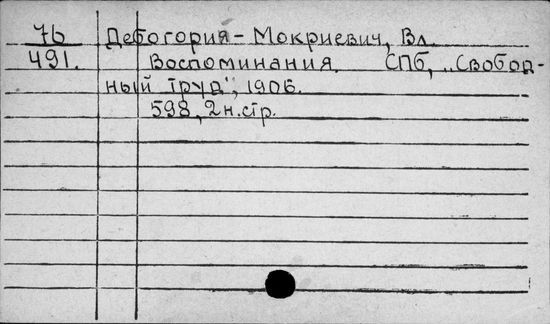 76 Дебогория-Мокриевич, Вл.
491. Воспоминания. СПб, „Свобод-
ный труд", 1906.
598, 2 н. стр.